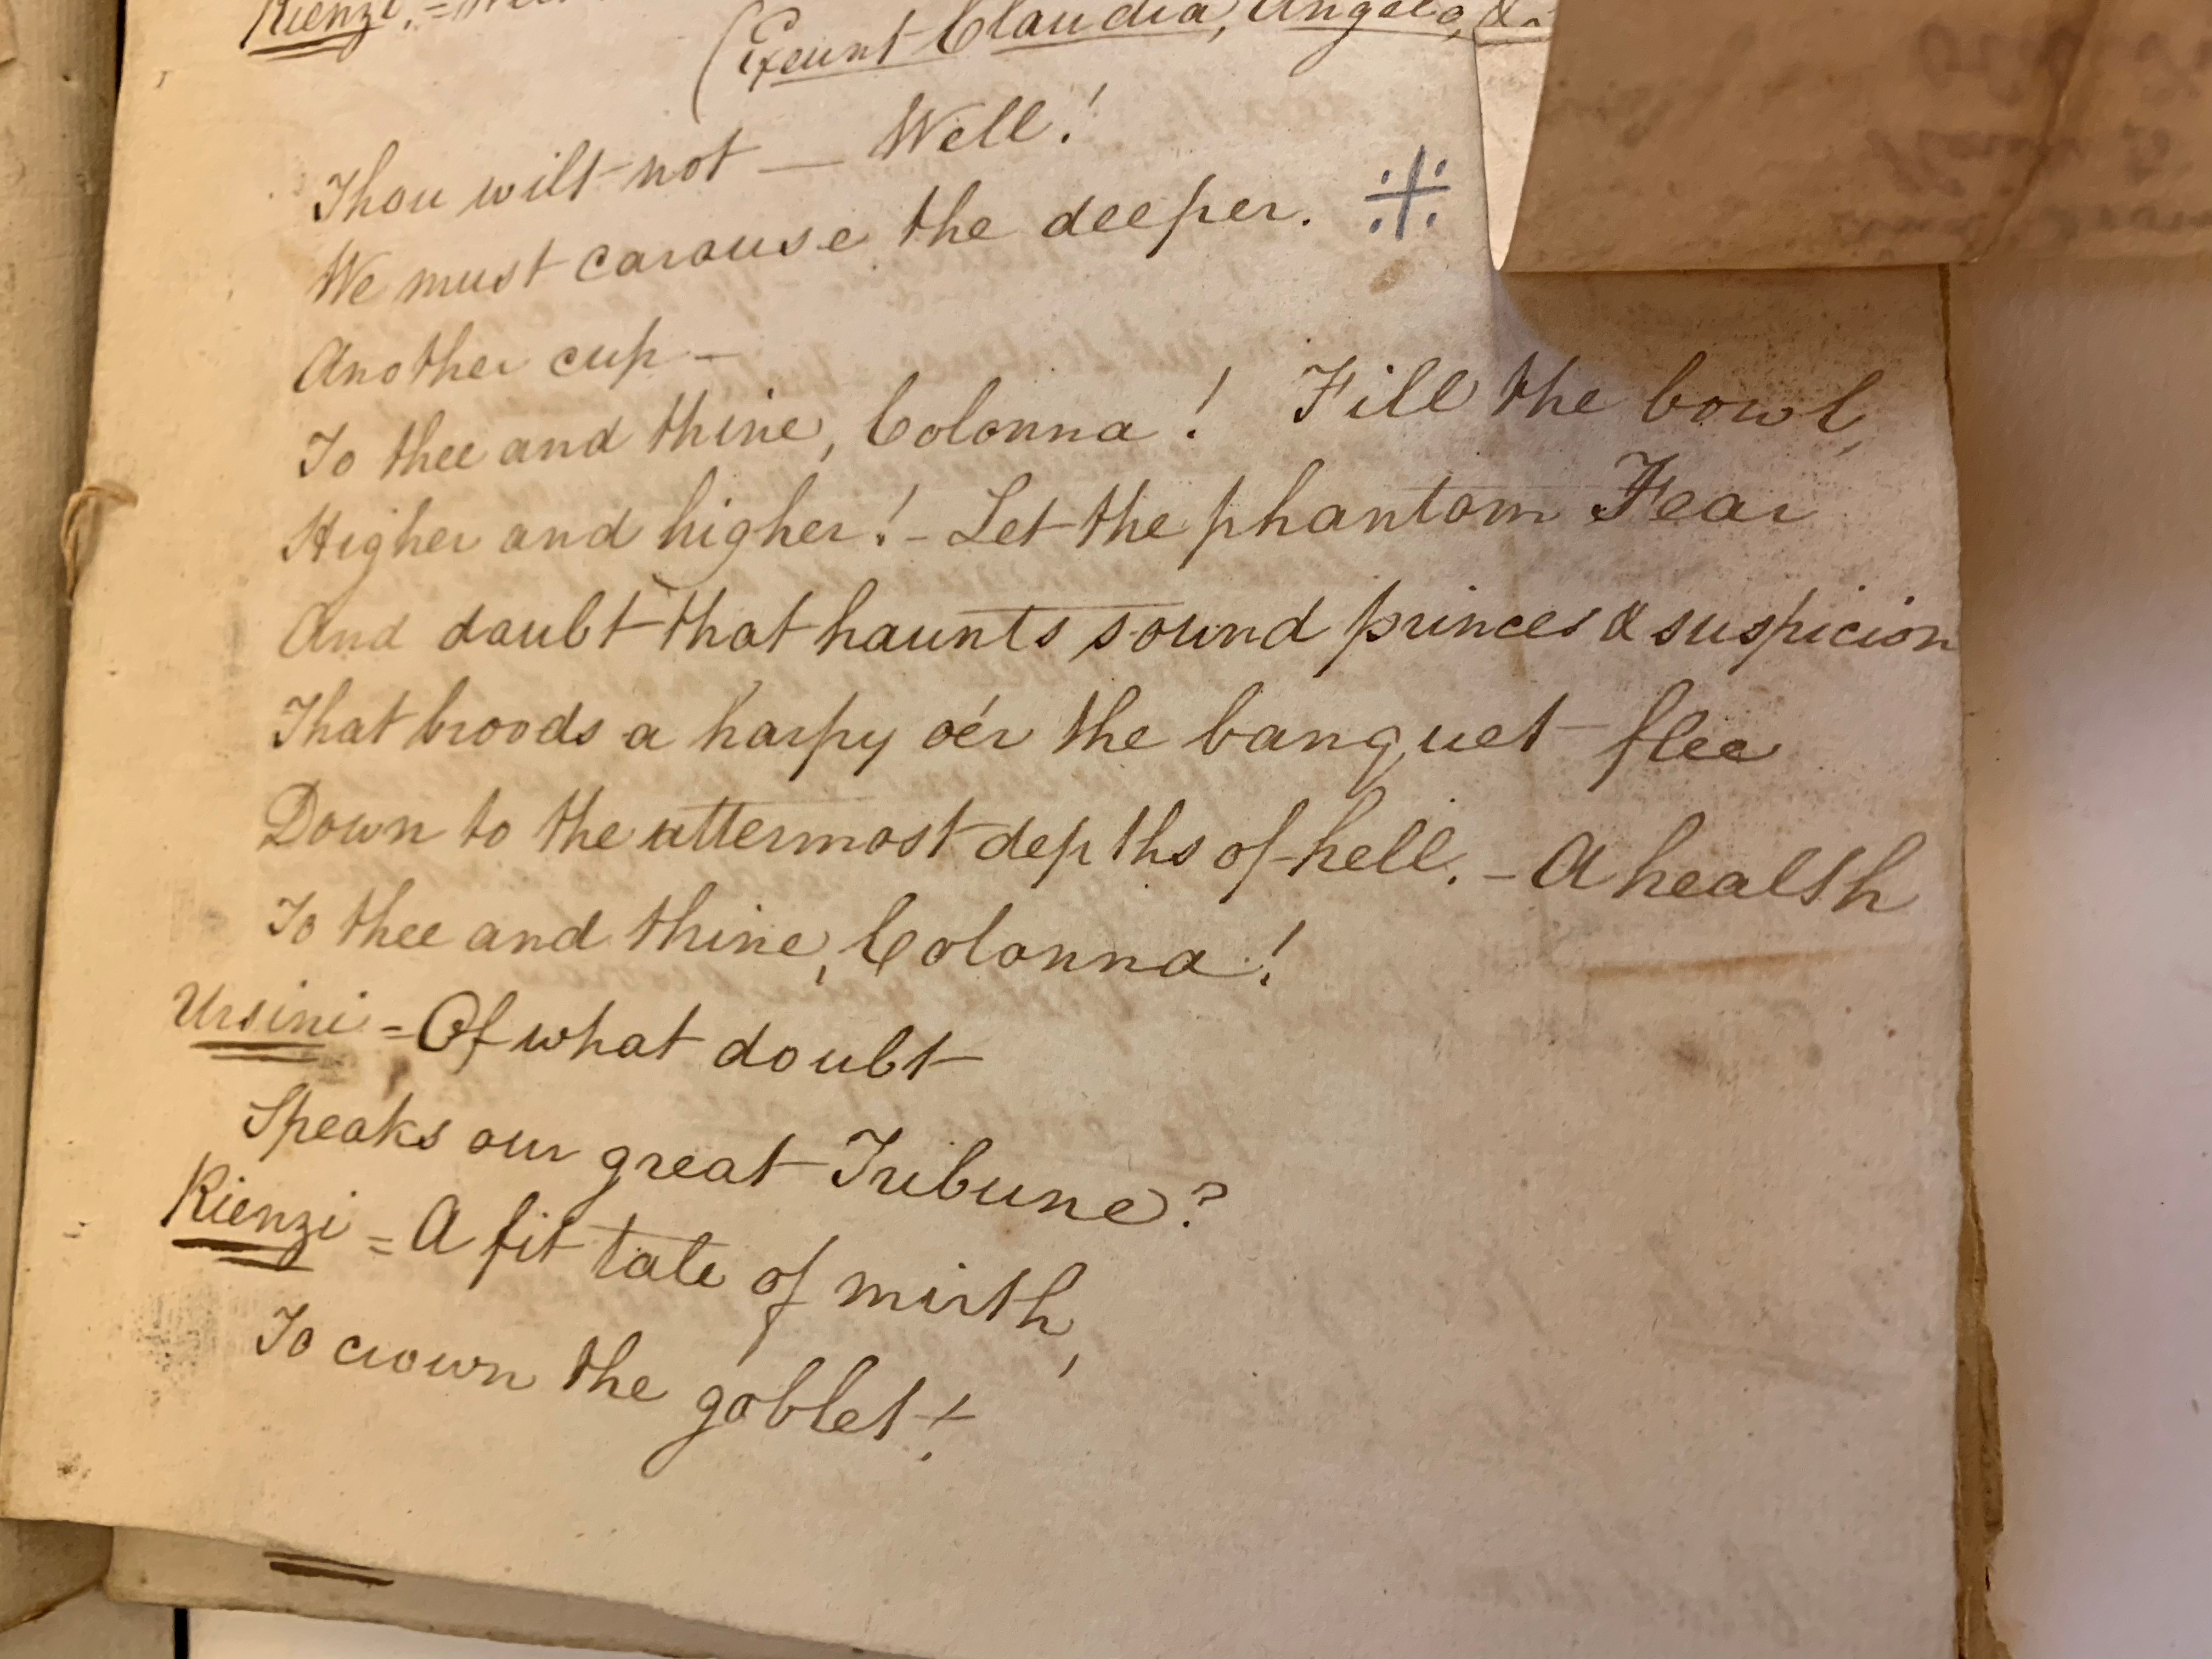 Rienzi. =
(Exeunt Claudia, Angelo, &
Thou wilt not — Well!
We must carouse the deeper.
Another cup —
To thee and thine, Colonna! Fill the bowl,
Higher and higher! - Let the phantom Fear
And doubt that haunts sound princes & suspicion
That broods a harpy o'er the banquet flee
Down to the uttermost depths of hell. - A health
To thee and thine, Colonna!
Ursini = Of what doubt
Speaks our great Tribune?
Rienzi = A fit tale of mirth,
To crown the goblet!